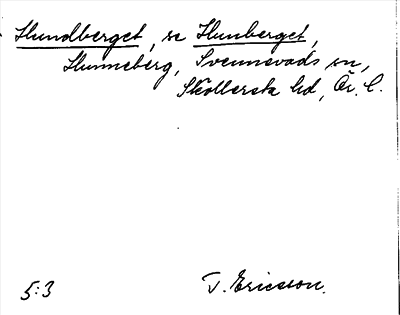 Hundberget, se Hunberget,
Hunneberg, Svennevads sn,
Skollersta hd, Ör. l.
5:3 T. Ericsson.